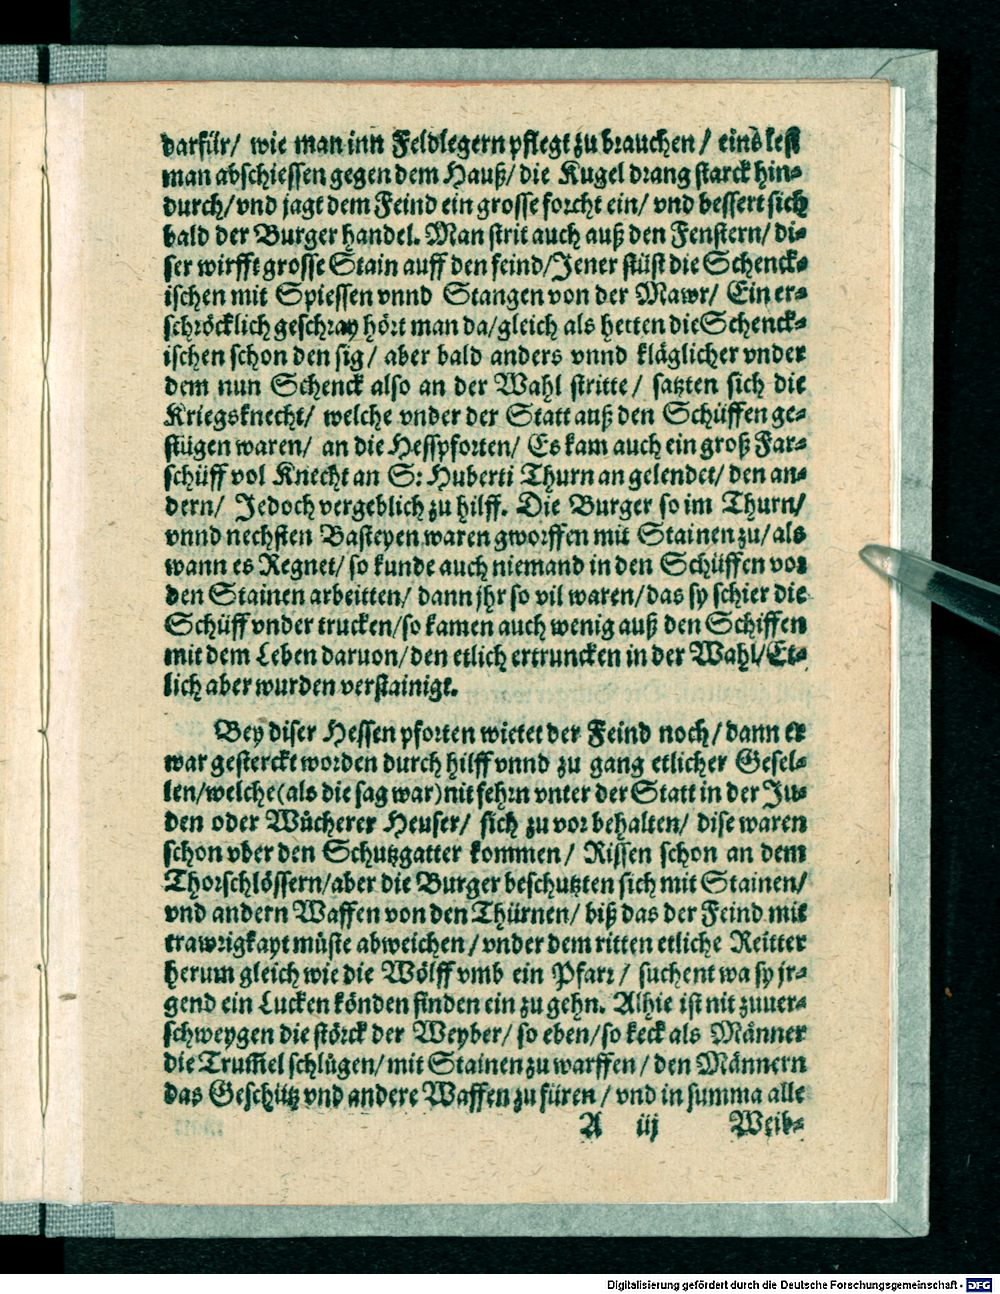 darfür/ wie man inn Feldlegern pflegt zu brauchen/ eins lest
man abschiessen gegen dem Hauß/ die Kugel drang starck hin-
durch/ vnd jagt dem Feind ein grosse forcht ein/ vnd bessert sich
bald der Burger handel. Man strit auch auß den Fenstern/ di-
ser wirfft grosse Stain auff den feind/ Jener stüst die Schenck-
ischen mit Spiessen vnnd Stangen von der Mawr/ Ein er-
schröcklich geschray hört man da/ gleich als hetten die Schenck-
ischen schon den sig/ aber bald anders vnnd kläglicher vnder
dem nun Schenck also an der Wahl stritte/ satzten sich die
Kriegsknecht/ welche vnder der Statt auß den Schüffen ge-
stügen waren/ an die Hesspforten/ Es kam auch ein groß Far-
schüff vol Knecht an S: Huberti Thurn an gelendet/ den an-
dern/ Jedoch vergeblich zu hilff. Die Burger so im Thurn/
vnnd nechsten Basteyen waren gworffen mit Stainen zu/ als
wann es Regnet/ so kunde auch niemand in den Schüffen vor
den Stainen arbeitten/ dann jhr so vil waren/ das sy schier die
Schüff vnder trucken/ so kamen auch wenig auß den Schiffen
mit dem Leben daruon/ den etlich ertruncken in der Wahl/ Et-
lich aber wurden verstainigt.
Bey diser Hessen pforten wietet der Feind noch/ dann er
war gesterckt worden durch hilff vnnd zu gang etlicher Gesel-
len/ welche (als die sag war) nit fehrn vnter der Statt in der Ju-
den oder Wücherer Heuser/ sich zu vor behalten/ dise waren
schon vber den Schutzgatter kommen/ Rissen schon an dem
Thorschlössern/ aber die Burger beschutzten sich mit Stainen/
vnd andern Waffen von den Thürnen/ biß das der Feind mit
trawrigkayt müste abweichen/ vnder dem ritten etliche Reitter
herum gleich wie die Wölff vmb ein Pfarr/ suchent wa sy jr-
gend ein Lucken könden finden ein zu gehn. Alhie ist nit zuuer-
schweygen die störck der Weyber/ so eben/ so keck als Männer
die Trum̃el schlügen/ mit Stainen zu warffen/ den Männern
das Geschütz vnd andere Waffen zu füren/ vnd in summa alle
A iij Weib-
Digitalisierung gefördert durch die Deutsche Forschungsgemeinschaft - DFG